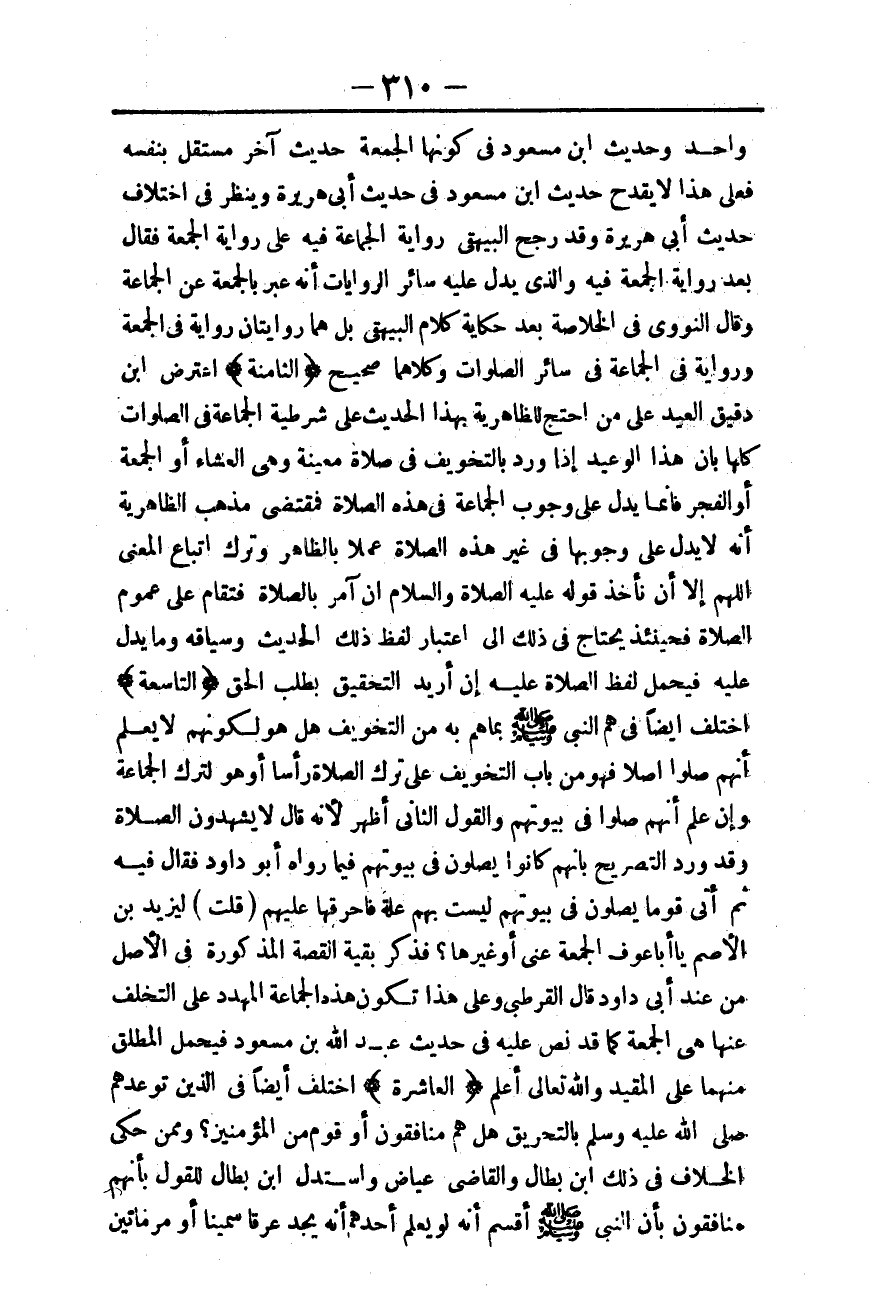 — ٣١٠ —
واحــد وحديث ابن مسعود فى كونها الجمعة حديث آخر مستقل بنفسه
فعلى هذا لايقدح حديث ابن مسعود فى حديث أبى هريرة وينظر فى اختلاف
حديث أبي هريرة وقد رجح البيهقى رواية الجماعة فيه على رواية الجمعة فقال
بعد رواية الجمعة فيه والذى يدل عليه سائر الروايات أنه عبر بالجمعة عن الجماعة
وقال النووى فى الخلاصة بعد حكاية كلام البيهقى بل هما روايتان رواية فى الجمعة
ورواية فى الجماعة فى سائر الصلوات وكلاهما صحيح ﴿الثامنة﴾ اعترض ابن
دقيق العيد على من احتج للظاهرية بهذا الحديث على شرطية الجماعة فى الصلوات
كلها بان هذا الوعيد إذا ورد بالتخويف فى صلاة معينة وهى العشاء أو الجمعة
أو الفجر فانما يدل على وجوب الجماعة فى هذه الصلاة فمقتضى مذهب الظاهرية
أنه لايدل على وجوبها فى غير هذه الصلاة عملا بالظاهر وترك اتباع المعنى
اللهم إلا أن نأخذ قوله عليه الصلاة والسلام ان آمر بالصلاة فتقام على عموم
الصلاة فحينئذ يحتاج فى ذلك الى اعتبار لفظ ذلك الحديث وسياقه ومايدل
عليه فيحمل لفظ الصلاة عليــه إن أريد التحقيق بطلب الحق ﴿التاسعة﴾
اختلف ايضاً فى هم النبى ﷺ بماهم به من التخويف هل هو لكونهم لايعــلم
أنهم صلوا اصلا فهو من باب التخويف على ترك الصلاة رأسا أو هو لترك الجماعة
وإن علم أنهم صلوا فى بيوتهم والقول الثانى أظهر لأنه قال لايشهدون الصــلاة
وقد ورد التصريح بانهم كانوا يصلون فى بيوتهم فيما رواه أبو داود فقال فيــه
ثم أتى قوما يصلون فى بيوتهم ليست بهم علة فاحرقها عليهم (قلت) ليزيد بن
الأصم ياأباعوف الجمعة عنى أو غيرها؟ فذكر بقية القصة المذكورة فى الأصل
من عند أبى داود قال القرطبى وعلى هذا تـكون هذه الجماعة المهدد على التخلف
عنها هى الجمعة كما قد نص عليه فى حديث عبـد الله بن مسعود فيحمل المطلق
منهما على المقيد والله تعالى أعلم ﴿العاشرة﴾ اختلف أيضاً فى الذين توعدهم
صلى الله عليه وسلم بالتحريق هل هم منافقون أو قوم من المؤمنين؟ وممن حكى
الخــلاف فى ذلك ابن بطال والقاضى عياض واســتدل ابن بطال للقول بأنهم
منافقون بأن النبى ﷺ أقسم أنه لو يعلم أحدهم أنه يجد عرقا سمينا أو مرماتين